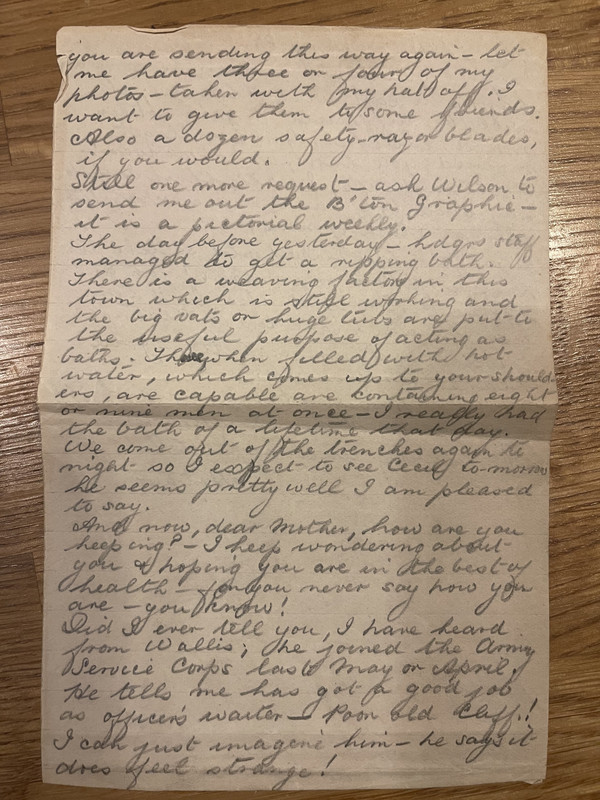 you are sending this way again - let
me have three or four of my
photos - taken with my hat off. I
want to give them to some friends.
Also a dozen safety-razor blades,
if you would.
Still one more request - ask Wilson to
send me out the B'ton Graphic -
it is a pictorial weekly.
The day before yesterday - hdqrs staff
managed to get a ripping bath.
There is a weaving factory in this
town which is still working and
the big vats or huge tubs are put to
the useful purpose of acting as
baths. These when filled with hot
water, which comes up to your should-
ers, are capable are containing eight
or nine men at once - I really had
the bath of a lifetime that day.
We come out of the trenches again to
night so I expect to see Cecil to-morrow
he seems pretty well I am pleased
to say.
And now, dear Mother, how are you
keeping? - I keep wondering about
you & hoping you are in the best of
health - for you never say how you
are - you know!
Did I ever tell you, I have heard
from Wallis; he joined the Army
Service Corps last May or April,
He tells me has got a good job
as officer's waiter - Poor old Cliff!!
I can just imagine him - he says it
does feel strange!